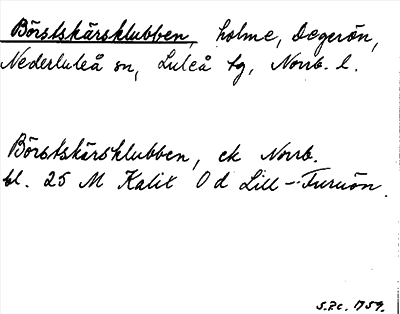 Börstskärsklubben, holme, Degerön,
Nederluleå sn, Luleå tg, Norrb. l.
Börstskärsklubben, ek Norrb.
bl. 25 M Kalix Od Lill-Furuön.
1759.